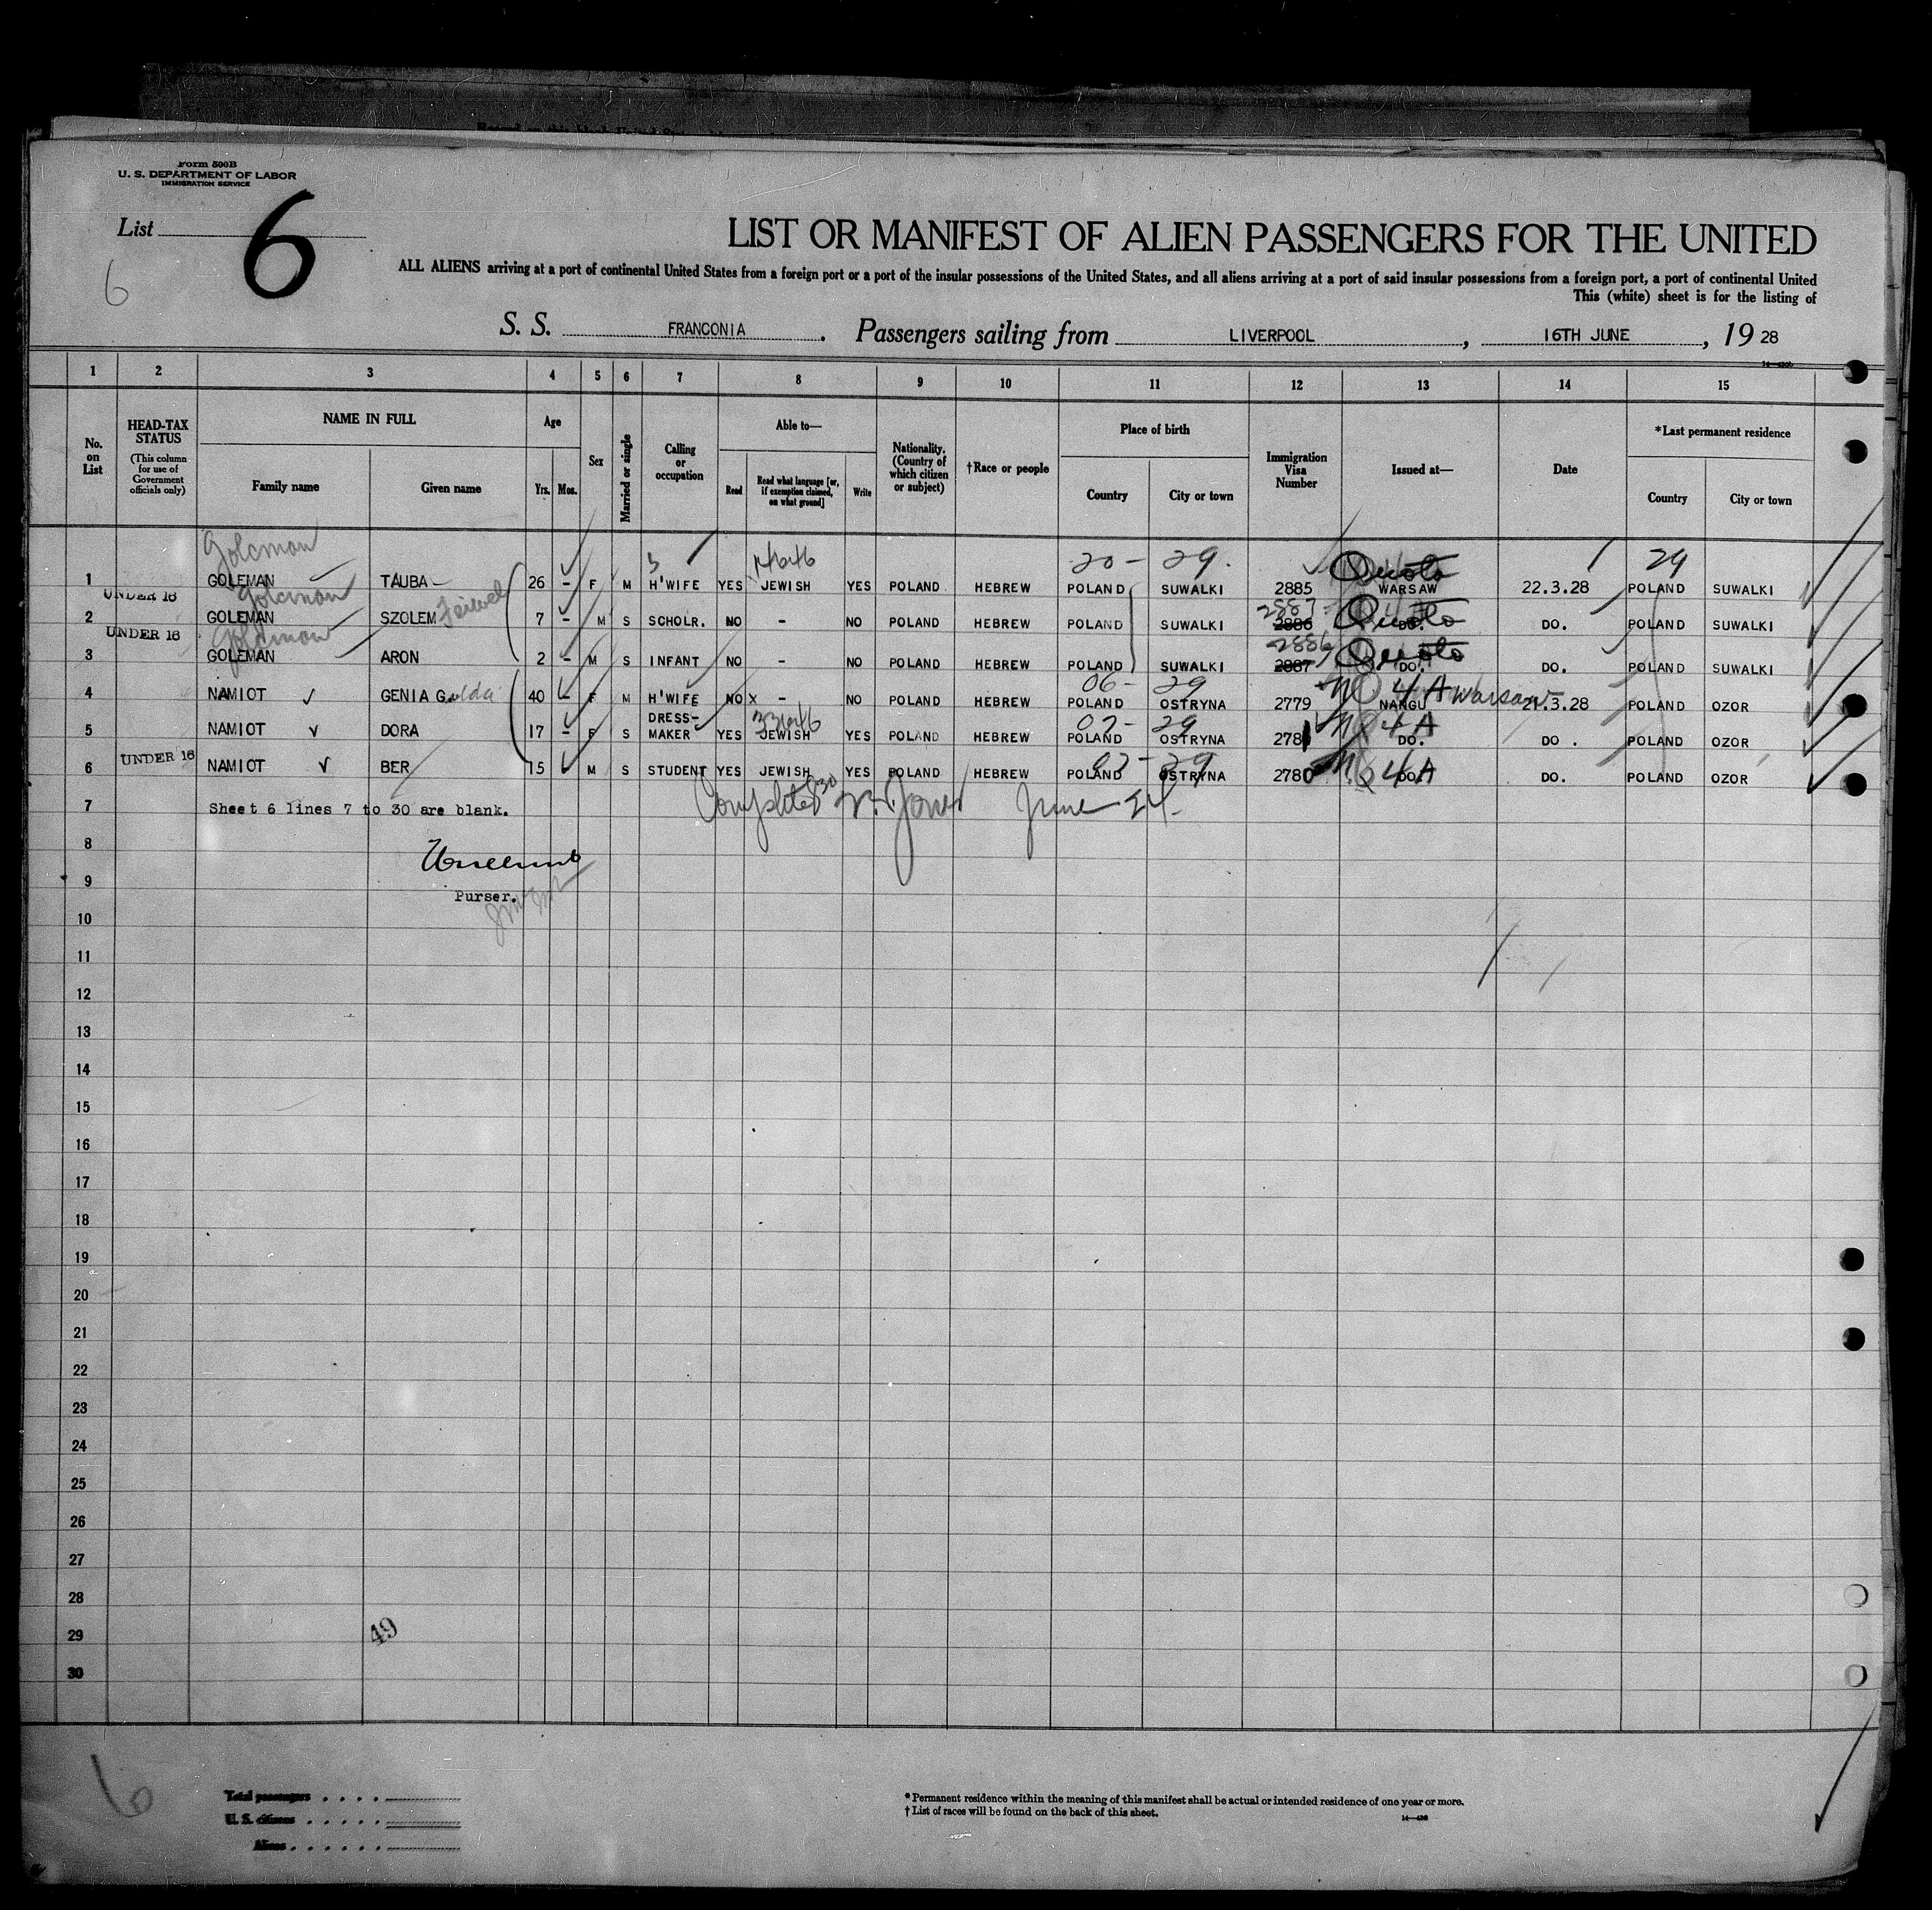 Form 500B
U. S. DEPARTMENT OF LABOR
IMMIGRATION SERVICE
List 6
6
LIST OR MANIFEST OF ALIEN PASSENGERS FOR THE UNITED
ALL ALIENS arriving at a port of continental United States from a foreign port or a port of the insular possessions of the United States, and all aliens arriving at a port of said insular possessions from a foreign port, a port of continental United
This (white) sheet is for the listing of
S. S. FRANCONIA. Passengers sailing from LIVERPOOL, 16TH JUNE, 19 28
1 2 3 4 5 6 7 8 9 10 11 12 13 14 15
No. on List
HEAD-TAX STATUS
(This column for use of Government officials only)
NAME IN FULL
Family name Given name
Age
Yrs. Mos.
Sex
Married or single
Calling or occupation
Able to—
Read Read what language [or, if exemption claimed, on what ground] Write
Nationality. (Country of which citizen or subject)
†Race or people
Place of birth
Country City or town
Immigration Visa Number
Issued at—
Date
*Last permanent residence
Country City or town
Golcman 3 20 - 29. Quota 29
1 GOLEMAN TAUBA 26 - F M H'WIFE YES JEWISH YES POLAND HEBREW POLAND SUWALKI 2885 WARSAW 22.3.28 POLAND SUWALKI
UNDER 16 Golcman 2887 Quota
2 GOLEMAN SZOLEM Feiwel 7 - M S SCHOLR. NO - NO POLAND HEBREW POLAND SUWALKI 2886 DO. DO. POLAND SUWALKI
UNDER 16 Golcman 2886 Quota
3 GOLEMAN ARON 2 - M S INFANT NO - NO POLAND HEBREW POLAND SUWALKI 2887 DO. DO. POLAND SUWALKI
06 - 29 4A Warsaw
4 NAMIOT GENIA Golda 40 - F M H'WIFE NO X - NO POLAND HEBREW POLAND OSTRYNA 2779 NANGU 21.3.28 POLAND OZOR
07 - 29 4A
5 NAMIOT DORA 17 - F S DRESS-MAKER YES JEWISH YES POLAND HEBREW POLAND OSTRYNA 2781 DO. DO. POLAND OZOR
UNDER 16 07 - 29 4A
6 NAMIOT BER 15 M S STUDENT YES JEWISH YES POLAND HEBREW POLAND OSTRYNA 2780 DO. DO. POLAND OZOR
7 Sheet 6 lines 7 to 30 are blank. Completed Jones June 24
8
9 Purser.
10
11
12
13
14
15
16
17
18
19
20
21
22
23
24
25
26
27
28
29 49
30
6
Total passengers
U. S. citizens
Aliens
* Permanent residence within the meaning of this manifest shall be actual or intended residence of one year or more.
† List of races will be found on the back of this sheet.